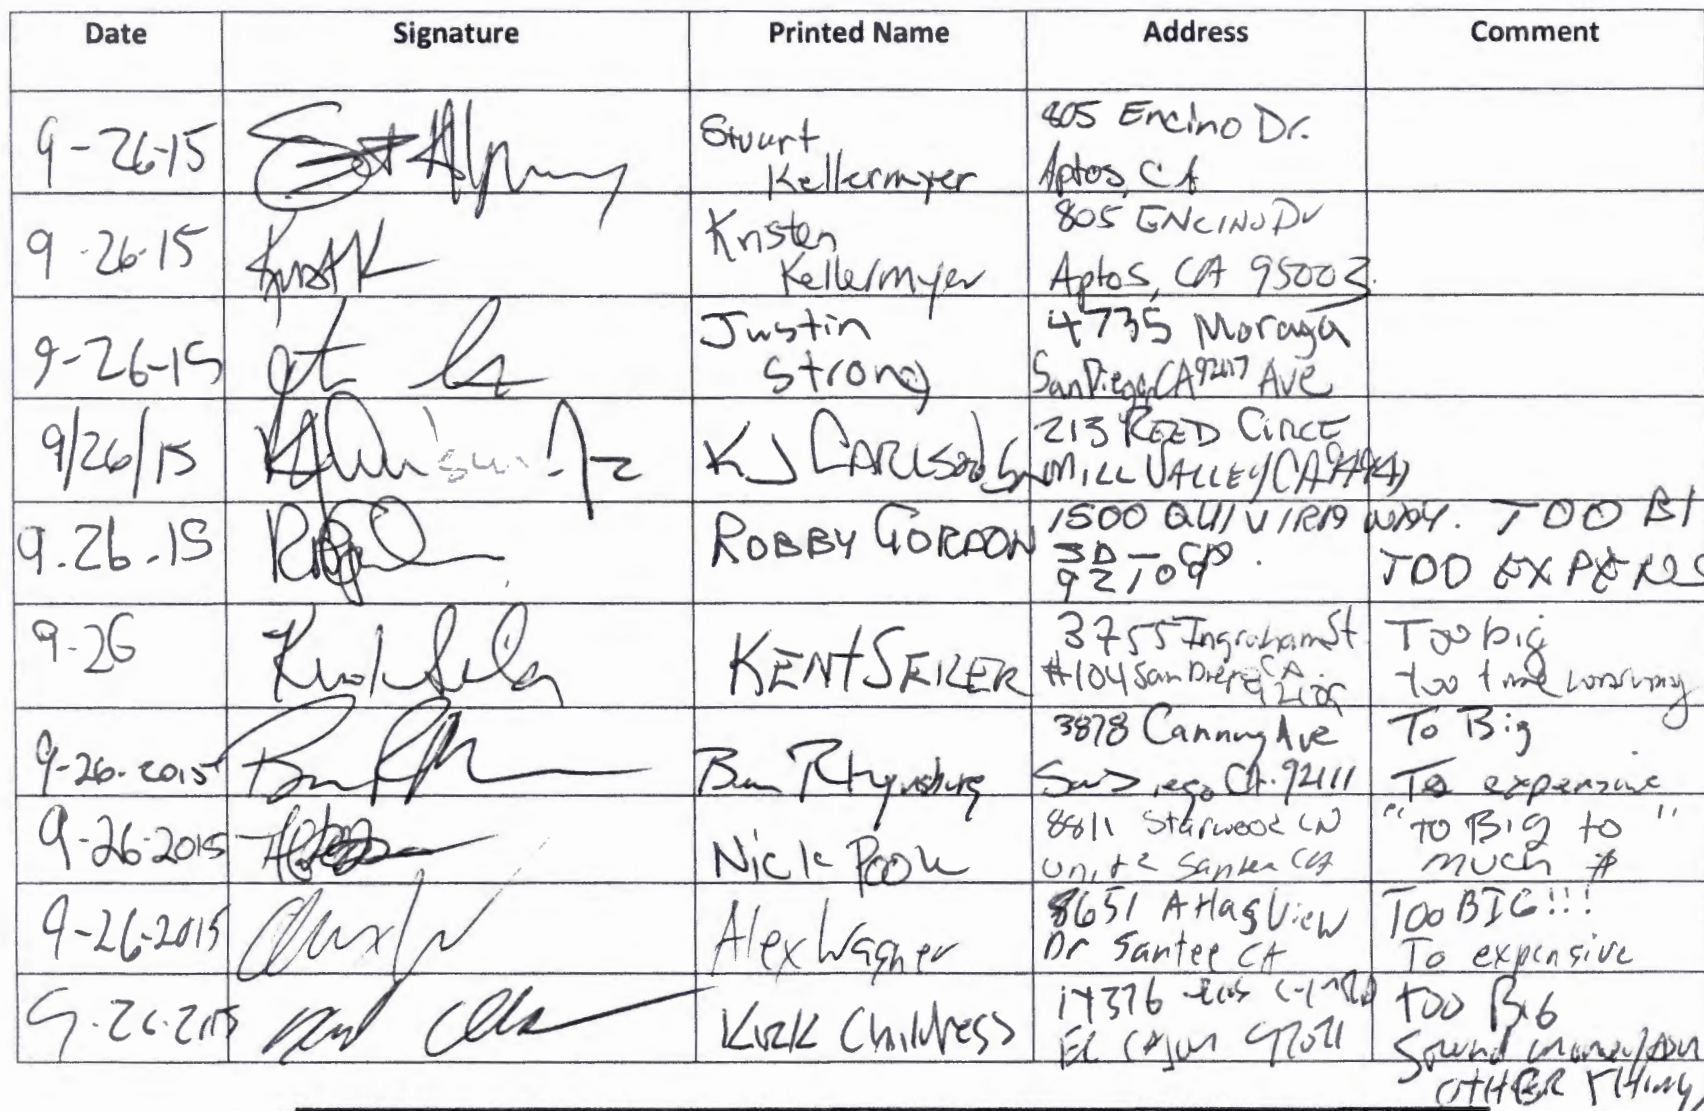 Date Signature Printed Name Address Comment
9-26-15 Stuart Kellermyer 805 Encino Dr.
Aptos, CA
9-26-15 Kristen Kellermyer 805 ENCINO Dr
Aptos, CA 95003
9-26-15 Justin Strong 4735 Moraga
San Diego, CA 92117 Ave
9/26/15 KJ CARLSON 213 REED CIRCLE
MILL VALLEY, CA 94941
9.26.15 ROBBY GORDON 1500 QUIVIRA WAY. TOO BI
SD - CA. 92109 TOO EXPENS
9-26 KENT SEILER 3755 Ingraham St Too big
#104 San Diego CA too time
9-26-2015 Ben 3878 Canning Ave To Big
San Diego CA. 92111 To expensive
9-26-2015 Nick 8811 Starwood LN "To Big to"
Unit 2 Santee CA much $
9-26-2015 Alex Wagner 8651 Atlas View Too BIG!!!
Dr Santee CA To expensive
9-26-2015 Kirk Childress 14376 too Big
El Cajon 92021 Spend money
OTHER things